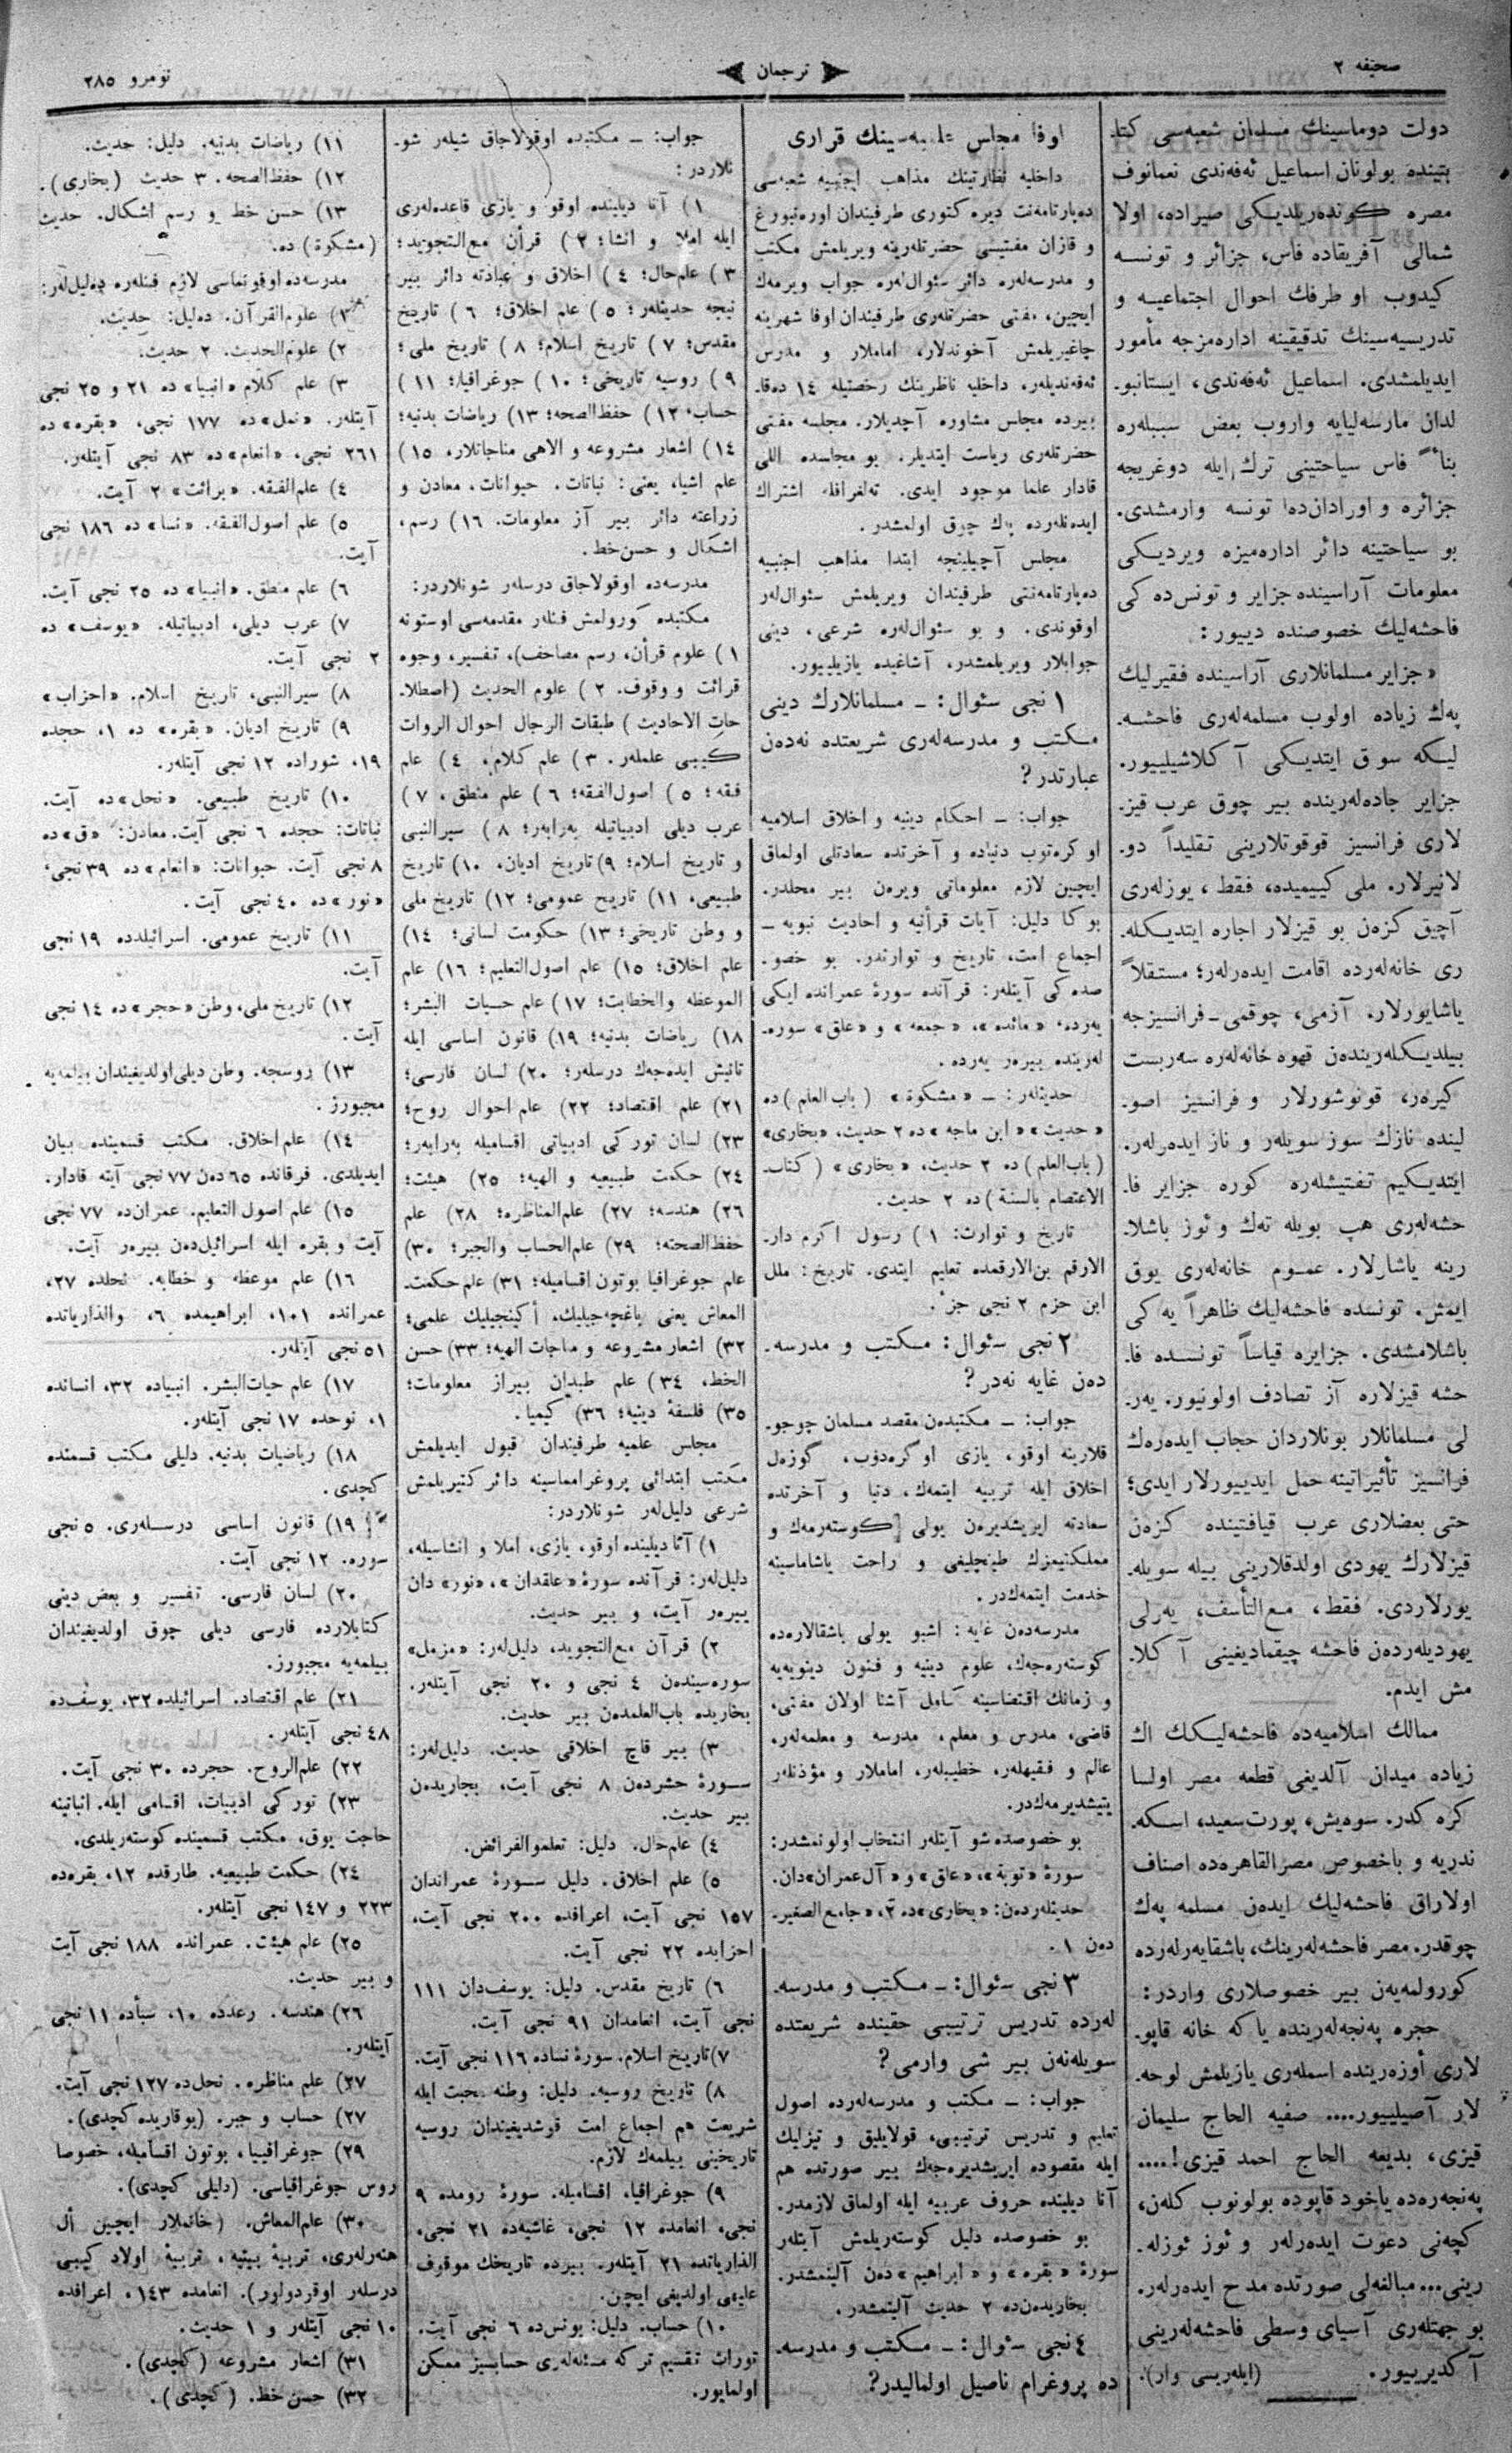 صحیفه ٢
ترجمان
نومرو ٢٨٥
دولت دوماسینك مسلمان شعبه‌سی كتا-
بتینده بولونان اسماعیل ئه‌فه‌ندی نعمانوف
مصره كونده‌ریلدیكی صیراده، اولا
شمالی آفریقاده فاس، جزائر و تونسه
كیدوب او طرفك احوال اجتماعیه و
تدریسیه‌سینك تدقیقینه اداره‌مزجه مأمور
ایدیلمشدی. اسماعیل ئه‌فه‌ندی، ایستانبو-
لدان مارسه‌لیایه واروب بعض سببله‌ره
بناءً فاس سیاحتینی ترك ایله دوغریجه
جزائره و اورادان‌ده تونسه وارمشدی.
بو سیاحتینه دائر اداره‌میزه ویردیكی
معلومات آراسینده جزایر و تونس‌ده كی
فاحشه‌لیك خصوصنده دییور:
«جزایر مسلمانلاری آراسینده فقیرلیك
په‌ك زیاده اولوب مسلمه‌له‌ری فاحشه-
لیكه سوق ایتدیكی آكلاشیلییور.
جزایر جاده‌له‌رینده بیر چوق عرب قیز-
لاری فرانسیز قوقوتلارینی تقلیداً دو-
لانیرلار. ملی كییمیده، فقط، یوزله‌ری
آچیق كزه‌ن بو قیزلار اجاره ایتدیكله-
ری خانه‌له‌رده اقامت ایده‌رله‌ر؛ مستقلاً
یاشایورلار. آزمی، چوقمی-فرانسیزجه
بیلدیكله‌ریندن قهوه خانه‌له‌ره سه‌ربست
كیره‌ر، قونوشورلار و فرانسیز اصو-
لینده نازك سوز سویله‌ر و ناز ایده‌رله‌ر.
ایتدیكیم تفتیشله‌ره كوره جزایر فا-
حشه‌له‌ری هپ بویله ته‌ك و ئوز باشلا-
رینه یاشارلار. عموم خانه‌له‌ری یوق
ایمش. تونسده فاحشه‌لیك ظاهراً یه كی
باشلامشدی. جزایره قیاساً تونسده فا-
حشه قیزلاره آز تصادف اولونیور. یه‌ر-
لی مسلمانلار بونلاردان حجاب ایده‌ره‌ك
فرانسیز تأثیراتینه حمل ایدییورلار ایدی؛
حتی بعضلاری عرب قیافتینده كزه‌ن
قیزلارك یهودی اولدقلارینی بیله سویله-
یورلاردی. فقط، مع‌التأسف، یه‌رلی
یهودیله‌رده‌ن فاحشه چیقمادیغینی آكلا-
مش ایدم.
ممالك اسلامیه‌ده فاحشه‌لیكك اك
زیاده میدان آلدیغی قطعه مصر اولسا
كره كدر. سوه‌یش، پورت‌سعید، اسكه-
ندریه و باخصوص مصرالقاهره‌ده اصناف
اولاراق فاحشه‌لیك ایده‌ن مسلمه په‌ك
چوقدر. مصر فاحشه‌له‌رینك، باشقایه‌رله‌رده
كورولمه‌یه‌ن بیر خصوصلاری واردر:
حجره په‌نجه‌له‌رینده یا كه خانه قاپو-
لاری أوزه‌رینده اسمله‌ری یازیلمش لوحه-
لار آصیلییور.... صفیه الحاج سلیمان
قیزی، بدیعه الحاج احمد قیزی!....
په‌نجه‌ره‌ده یاخود قاپوده بولونوب كله‌ن،
كچه‌نی دعوت ایده‌رله‌ر و ئوز ئوزله-
رینی... مبالغه‌لی صورتده مدح ایده‌رله‌ر.
بو جهتله‌ری آسیای وسطی فاحشه‌له‌رینی
آكدیرییور. (ایله‌ریسی وار).
اوفا مجلس علمیه‌سینك قراری
داخلیه نظارتینك مذاهب اجنبیه شعبه‌سی
ده‌پارتامه‌نت دیره كتوری طرفیندان اوره‌نبورغ
و قازان مفتیسی حضرتله‌رینه ویریلمش مكتب
و مدرسه‌له‌ره دائر سئوال‌له‌ره جواب ویرمه‌ك
ایچین، مفتی حضرتله‌ری طرفیندان اوفا شهرینه
چاغیریلمش آخوندلار، اماملار و مدرس
ئه‌فه‌ندیله‌ر، داخلیه ناظرینك رخصتیله ١٤ ده‌قا-
بیرده مجلس مشاوره آچدیلار. مجلسه مفتی
حضرتله‌ری ریاست ایتدیلر. بو مجلسده اللی
قادار علما موجود ایدی. ته‌لغرافله اشتراك
ایده‌نله‌رده په‌ك چوق اولمشدر.
مجلس آچیلینجه ابتدا مذاهب اجنبیه
ده‌پارتامه‌نتی طرفیندان ویریلمش سئوال‌له‌ر
اوقوندی. و بو سئوال‌له‌ره شرعی، دینی
جوابلار ویریلمشدر، آشاغیده یازیلییور.
١ نجی سئوال: ـ مسلمانلارك دینی
مكتب و مدرسه‌له‌ری شریعتده نه‌ده‌ن
عبارتدر؟
جواب: ـ احكام دینیه و اخلاق اسلامیه
اوكره‌توب دنیاده و آخرتده سعادتلی اولماق
ایچین لازم معلوماتی ویره‌ن بیر محلدر.
بوكا دلیل: آیات قرأنیه و احادیث نبویه ـ
اجماع امت، تاریخ و توارثدر. بو خصو-
صده كی آیتله‌ر: قرآنده سورۀ عمرانده ایكی
یه‌رده، «مائده»، «جمعه» و «علق» سوره-
له‌رینده بیره‌ر یه‌رده.
حدیثله‌ر: ـ «مشكوة» (باب العلم) ده
«حدیث» «ابن ماجه» ده ٢ حدیث، «بخاری»
(باب‌العلم) ده ٢ حدیث، «بخاری» (كتاب
الاعتصام بالسنة) ده ٢ حدیث.
تاریخ و توارث: ١) رسول اكرم دار-
الارقم بن‌الارقمده تعلیم ایتدی. تاریخ: ملل
ابن حزم ٢ نجی جزء.
٢ نجی سئوال: مكتب و مدرسه-
ده‌ن غایه نه‌در؟
جواب: ـ مكتبده‌ن مقصد مسلمان چوجو-
قلارینه اوقو، یازی اوكره‌دوب، گوزه‌ل
اخلاق ایله تربیه ایتمه‌ك، دنیا و آخرتده
سعادته ایریشدیره‌ن یولی كوسته‌رمه‌ك و
مملكتیمزك طینچلیغی و راحت یاشاماسینه
خدمت ایتمه‌كدر.
مدرسه‌ده‌ن غایه: اشبو یولی باشقالاره‌ده
كوسته‌ره‌جه‌ك، علوم دینیه و فنون دینویه‌یه
و زمانك اقتضاسینه كامل آشنا اولان مفتی،
قاضی، مدرس و معلم، مدرسه و معلمه‌له‌ر،
عالم و فقیهله‌ر، خطیبله‌ر، اماملار و مؤذنله‌ر
یتیشدیرمه‌كدر.
بو خصوصده شو آیتله‌ر انتخاب اولونمشدر:
سورۀ «توبة»، «علق» و «آل عمران» دان.
حدیثله‌رده‌ن: «بخاری» ده ٢، «جامع الصغیر-
ده‌ن ١.
٣ نجی سئوال: ـ مكتب و مدرسه-
له‌رده تدریس ترتیبی حقینده شریعتده
سویله‌نه‌ن بیر شی وارمی؟
جواب: ـ مكتب و مدرسه‌له‌رده اصول
تعلیم و تدریس ترتیبی، قولایلیق و تیزلیك
ایله مقصوده ایریشدیره‌جه‌ك بیر صورتده هم
آنا دیلینده حروف عربیه ایله اولماق لازمدر.
بو خصوصده دلیل كوسته‌ریلمش آیتله‌ر
سورۀ «بقره» و «ابراهیم» ده‌ن آلینمشدر.
بخاریده‌ن‌ده ٢ حدیث آلینمشدر.
٤ نجی سئوال: ـ مكتب و مدرسه-
ده پروغرام ناصیل اولمالیدر؟
جواب: ـ مكتبده اوقولاجاق شیله‌ر شو-
نلاردر:
١) آنا دیلینده اوقو و یازی قاعده‌له‌ری
ایله املا و انشا؛ ٢) قرأن مع‌التجوید؛
٣) علم‌حال؛ ٤) اخلاق و عبادته دائر بیر
نیجه حدیثله‌ر؛ ٥) علم اخلاق؛ ٦) تاریخ
مقدس؛ ٧) تاریخ اسلام؛ ٨) تاریخ ملی؛
٩) روسیه تاریخی؛ ١٠) جوغرافیا؛ ١١)
حساب، ١٢) حفظ‌الصحه؛ ١٣) ریاضات بدنیه؛
١٤) اشعار مشروعه و الاهی مناجاتلار، ١٥)
علم اشیا، یعنی: نباتات، حیوانات، معادن و
زراعته دائر بیر آز معلومات. ١٦) رسم،
اشكال و حسن‌خط.
مدرسه‌ده اوقولاجاق درسله‌ر شونلاردر:
مكتبده كورولمش فنله‌ر مقدمه‌سی اوستونه
١) علوم قرأن، رسم مصاحف)، تفسیر، وجوه
قرائت و وقوف. ٢) علوم الحدیث (اصطلا-
حاتِ الاحادیث) طبقات الرجال احوال الروات
كیبی علمله‌ر. ٣) علم كلام، ٤) علم
فقه؛ ٥) اصول‌الفقه؛ ٦) علم منطق، ٧)
عرب دیلی ادبیاتیله به‌رابه‌ر؛ ٨) سیرالنبی
و تاریخ اسلام؛ ٩) تاریخ ادیان، ١٠) تاریخ
طبیعی، ١١) تاریخ عمومی؛ ١٢) تاریخ ملی
و وطن تاریخی؛ ١٣) حكومت لسانی؛ ١٤)
علم اخلاق؛ ١٥) علم اصول‌التعلیم؛ ١٦) علم
الموعظه والخطابت؛ ١٧) علم حسیات البشر؛
١٨) ریاضات بدنیه؛ ١٩) قانون اساسی ایله
تانیش ایده‌جه‌ك درسله‌ر؛ ٢٠) لسان فارسی؛
٢١) علم اقتصاد؛ ٢٢) علم احوال روح؛
٢٣) لسان توركی ادبیاتی اقسامیله به‌رابه‌ر؛
٢٤) حكمت طبیعیه و الهیه؛ ٢٥) هیئت؛
٢٦) هندسه؛ ٢٧) علم‌المناظره؛ ٢٨) علم
حفظ‌الصحته؛ ٢٩) علم‌الحساب والجبر؛ ٣٠)
علم جوغرافیا بوتون اقسامیله؛ ٣١) علم حكمت-
المعاش یعنی باغچه‌جیلیك، أكینجیلیك علمی؛
٣٢) اشعار مشروعه و مناجات الهیه؛ ٣٣) حسن
الخط، ٣٤) علم طبدان بیراز معلومات؛
٣٥) فلسفۀ دینیه؛ ٣٦) كیمیا.
مجلس علمیه طرفیندان قبول ایدیلمش
مكتب ابتدائی پروغرامماسینه دائر كتیریلمش
شرعی دلیل‌له‌ر شونلاردر:
١) آنا دیلینده اوقو، یازی، املا و انشاسیله،
دلیل‌له‌ر: قرآنده سورۀ «علقدان»، «نور» دان
بیره‌ر آیت، و بیر حدیث.
٢) قرآن مع‌التجوید، دلیل‌له‌ر: «مزمل»
سوره‌سینده‌ن ٤ نجی و ٢٠ نجی آیتله‌ر.
بخاریده باب‌العلمده‌ن بیر حدیث.
٣) بیر قاچ اخلاقی حدیث. دلیل‌له‌ر:
سورۀ حشرده‌ن ٨ نجی آیت، بخاریده‌ن
بیر حدیث.
٤) علم‌حال. دلیل: تعلموالفرائض.
٥) علم اخلاق. دلیل سورۀ عمراندان
١٥٧ نجی آیت، اعرافده ٢٠٠ نجی آیت،
احزابده ٢٢ نجی آیت.
٦) تاریخ مقدس. دلیل: یوسف‌دان ١١١
نجی آیت، انعامدان ٩١ نجی آیت.
٧) تاریخ اسلام. سورۀ نساده ١١٦ نجی آیت.
٨) تاریخ روسیه. دلیل: وطنه محبت ایله
شریعت هم اجماع امت قوشدیغیندان روسیه
تاریخینی بیلمه‌ك لازم.
٩) جوغرافیا، اقسامیله. سورۀ رومده ٩
نجی، انعامده ١٢ نجی، غاشیه‌ده ٢١ نجی،
الذاریاتده ٢١ آیتله‌ر. بیرده تاریخك موقوف
علیهی اولدیغی ایچن.
١٠) حساب. دلیل: یونس‌ده ٦ نجی آیت.
توراث تقسیم تركه مسئله‌له‌ری حسابسیز ممكن
اولمایور.
١١) ریاضات بدنیه. دلیل: حدیث.
١٢) حفظ‌الصحه. ٣ حدیث (بخاری).
١٣) حسن خط و رسم اشكال. حدیث
(مشكوة) ده.
مدرسه‌ده اوقونماسی لازم فنله‌ره ده‌لیل‌له‌ر:
١) علوم‌القرآن. ده‌لیل: حدیث.
٢) علوم‌الحدیث. ٢ حدیث.
٣) علم كلام «انبیا» ده ٢١ و ٢٥ نجی
آیتله‌ر. «نمل» ده ١٧٧ نجی، «بقره» ده
٢٦١ نجی، «انعام» ده ٨٣ نجی آیتله‌ر.
٤) علم‌الفقه. «برائت» ٢ آیت.
٥) علم اصول‌الفقه. «نسا» ده ١٨٦ نجی
آیت.
٦) علم منطق. «انبیا» ده ٢٥ نجی آیت.
٧) عرب دیلی، ادبیاتیله. «یوسف» ده
٢ نجی آیت.
٨) سیرالنبی، تاریخ اسلام. «احزاب»
٩) تاریخ ادیان. «بقره» ده ١، حجده
١٩، شوراده ١٢ نجی آیتله‌ر.
١٠) تاریخ طبیعی. «نحل» ده آیت.
نباتات: حجده ٦ نجی آیت. معادن: «ق» ده
٨ نجی آیت. حیوانات: «انعام» ده ٣٩ نجی،
«نور» ده ٤٠ نجی آیت.
١١) تاریخ عمومی. اسرائیلدده ١٩ نجی
آیت.
١٢) تاریخ ملی، وطن «حجر» ده ١٤ نجی
آیت.
١٣) روسجه. وطن دیلی اولدیغیندان بیلمه‌یه
مجبورز.
١٤) علم اخلاق. مكتب قسمینده بیان
ایدیلدی. فرقانده ٦٥ ده‌ن ٧٧ نجی آیته قادار.
١٥) علم اصول التعلیم. عمران‌ده ٧٧ نجی
آیت و بقره ایله اسرائیل‌ده‌ن بیره‌ر آیت.
١٦) علم موعظه و خطابه. نحلده ٢٧،
عمرانده ١٠١، ابراهیمده ٦، والذاریاتده
٥١ نجی آیتله‌ر.
١٧) علم حیات‌البشر. انبیاده ٣٢، انسانده
١، نوحده ١٧ نجی آیتله‌ر.
١٨) ریاضیات بدنیه. دلیلی مكتب قسمنده
كچدی.
١٩) قانون اساسی درسله‌ری. ٥ نجی
سوره. ١٢ نجی آیت.
٢٠) لسان فارسی. تفسیر و بعض دینی
كتابلارده فارسی دیلی چوق اولدیغیندان
بیلمه‌یه مجبورز.
٢١) علم اقتصاد. اسرائیلده ٣٢، یوسف‌ده
٤٨ نجی آیتله‌ر.
٢٢) علم‌الروح. حجرده ٣٠ نجی آیت.
٢٣) توركی ادبیات، اقسامی ایله. اثباتینه
حاجت یوق، مكتب قسمینده كوسته‌ریلدی.
٢٤) حكمت طبیعیه. طارقده ١٢، بقره‌ده
٢٢٣ و ١٤٧ نجی آیتله‌ر.
٢٥) علم هیئت. عمرانده ١٨٨ نجی آیت
و بیر حدیث.
٢٦) هندسه. رعدده ١٠، سبأده ١١ نجی
آیتله‌ر.
٢٧) علم مناظره. نحل‌ده ١٢٧ نجی آیت.
٢٧) حساب و جبر. (یوقاریده كچدی).
٢٩) جوغرافییا، بوتون اقسامیله، خصوصا
روس جوغرافیاسی. (دلیلی كچدی).
٣٠) علم‌المعاش. (خانملار ایچین أل
هنه‌رله‌ری، تربیۀ بیتیه، تربیۀ اولاد كیبی
درسله‌ر اوقودولور). انعامده ١٤٣، اعرافده
١٠ نجی آیتله‌ر و ١ حدیث.
٣١) اشعار مشروعه (كچدی).
٣٢) حسن خط. (كچدی).